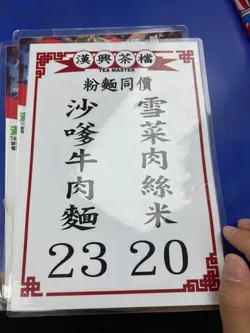 漢興茶檔
TEA MASTER
粉麵同價
雪菜肉絲米
20
沙嗲牛肉麵
23